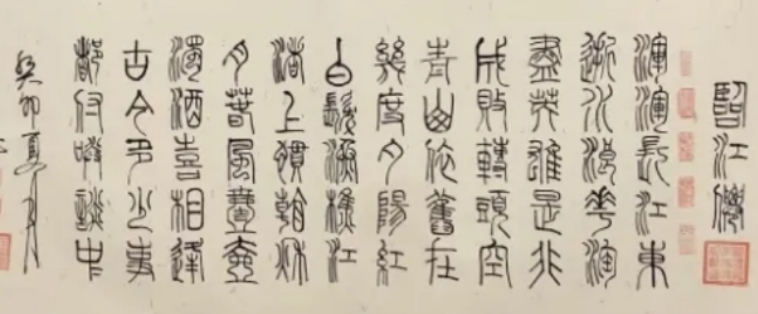 臨江僊
滾滾長江東
逝水浪花淘
盡英雄是非
成敗轉頭空
青山依舊在
幾度夕陽紅
白髮漁樵江
渚上慣看秋
月春風壹壺
濁酒喜相逢
古今多少事
都付笑談中
癸卯夏月